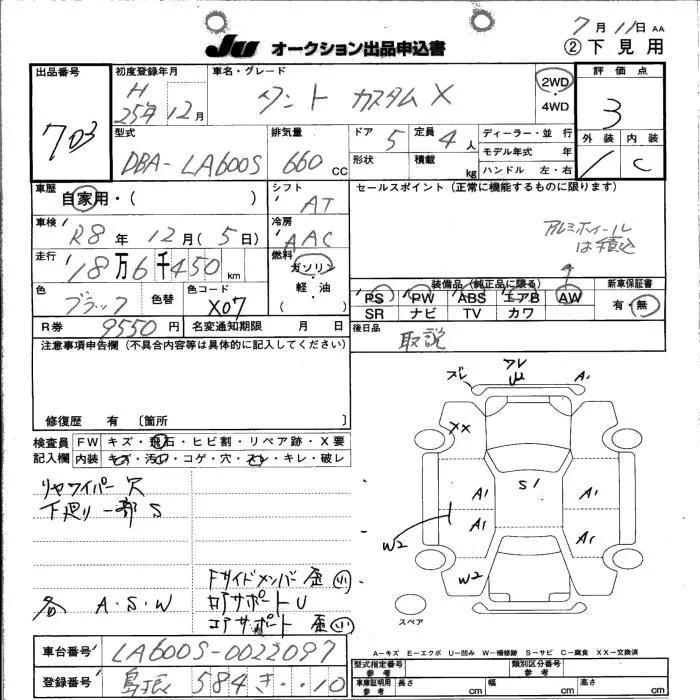 7月11日 AA
JU オークション出品申込書
② 下見用
出品番号
703
初度登録年月
H
25年12月
車名・グレード
タント カスタムX
2WD
・
4WD
評価点
3
外装 内装
C
型式
DBA-LA600S
排気量
660 CC
ドア 5
定員 4人
形状
積載 kg
ディーラー・並 行
モデル年式 年
ハンドル 左・右
車歴
自家用・( )
シフト
AT
セールスポイント（正常に機能するものに限ります）
アルミホイール
は積込
車検
R8年 12月(5日)
冷房
AAC
走行
18万6千450km
燃料
ガソリン
・
軽・油
( )
色
ブラック
色替
色コード
X07
装備品（純正品に限る）
PS PW ABS エアB AW
SR ナビ TV カワ
新車保証書
有・無
R券 9550円
名変通知期限 月 日
後日品
取説
注意事項申告欄（不具合内容等は具体的に記入してください）
修復歴 有 〔箇所 〕
検査員
記入欄
FW キズ・飛石・ヒビ割・リペア跡・X要
内装 キズ・汚れ・コゲ・穴・スレ・キレ・破レ
リヤワイパー穴
下廻り一部S
各 A・S・W
Fサイドメンバー歪(小)
ロアサポートU
コアサポート歪(小)
ズレ
フレ
U
A1
XX
S1
A1
A1
A1
A1
W2
W2
スペア
A－キズ E－エクボ U－凹み W－補修跡 S－サビ C－腐食 XX－交換済
車台番号 LA600S-0022097
登録番号 584 き ・・10
型式指定番号
参考
類別区分番号
参考
車庫証明用
参考
長さ cm
幅 cm
高さ cm